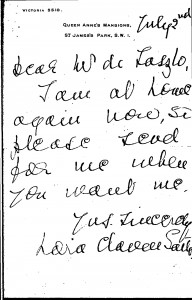 VICTORIA 5518.
QUEEN ANNE'S MANSIONS,
ST JAMES'S PARK, S.W.1.
July 2nd
Dear Mr de Laszlo,
I am at home
again now, so
please send
for me when
you want me.
Yrs. Sincerely